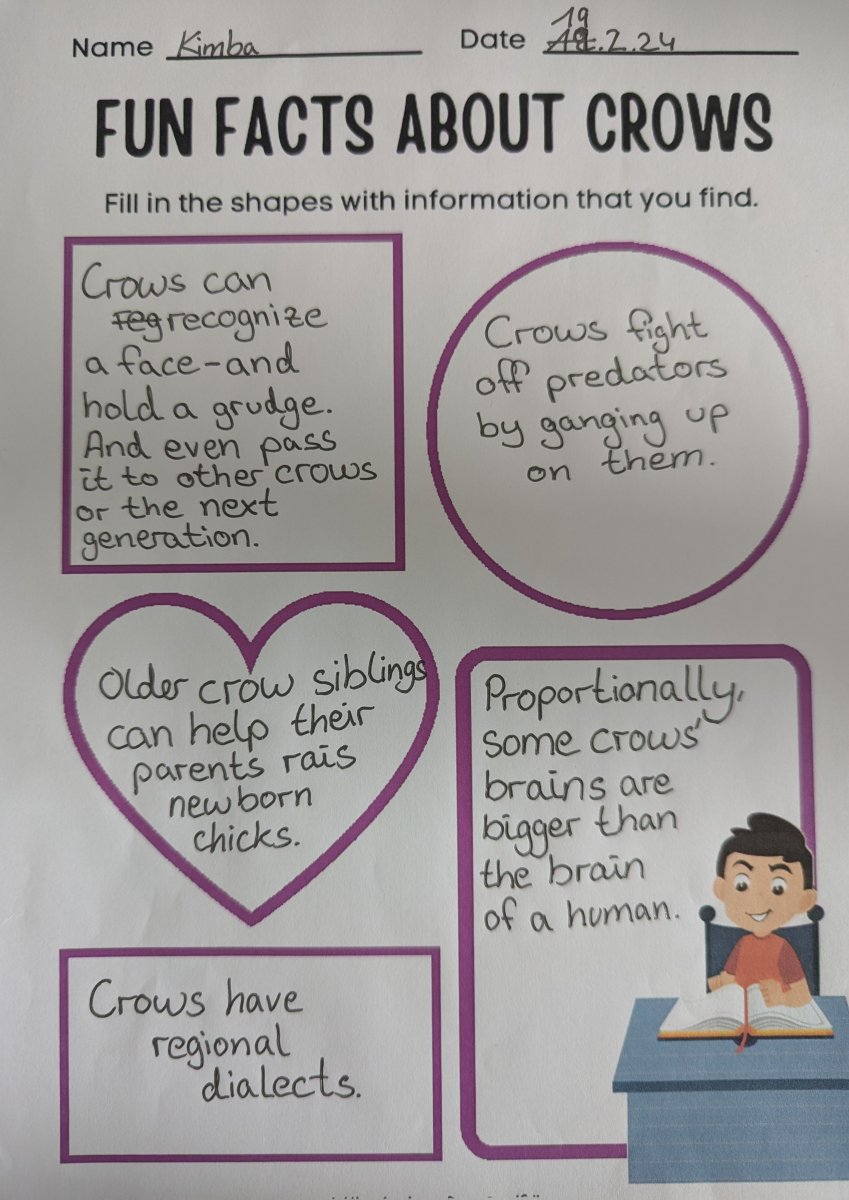 Name Kimba Date 19.2.24
FUN FACTS ABOUT CROWS
Fill in the shapes with information that you find.
Crows can
reg recognize
a face-and
hold a grudge.
And even pass
it to other crows
or the next
generation.
Crows fight
off predators
by ganging up
on them.
Older crow siblings
can help their
parents rais
newborn
chicks.
Proportionally,
some crows'
brains are
bigger than
the brain
of a human.
Crows have
regional
dialects.